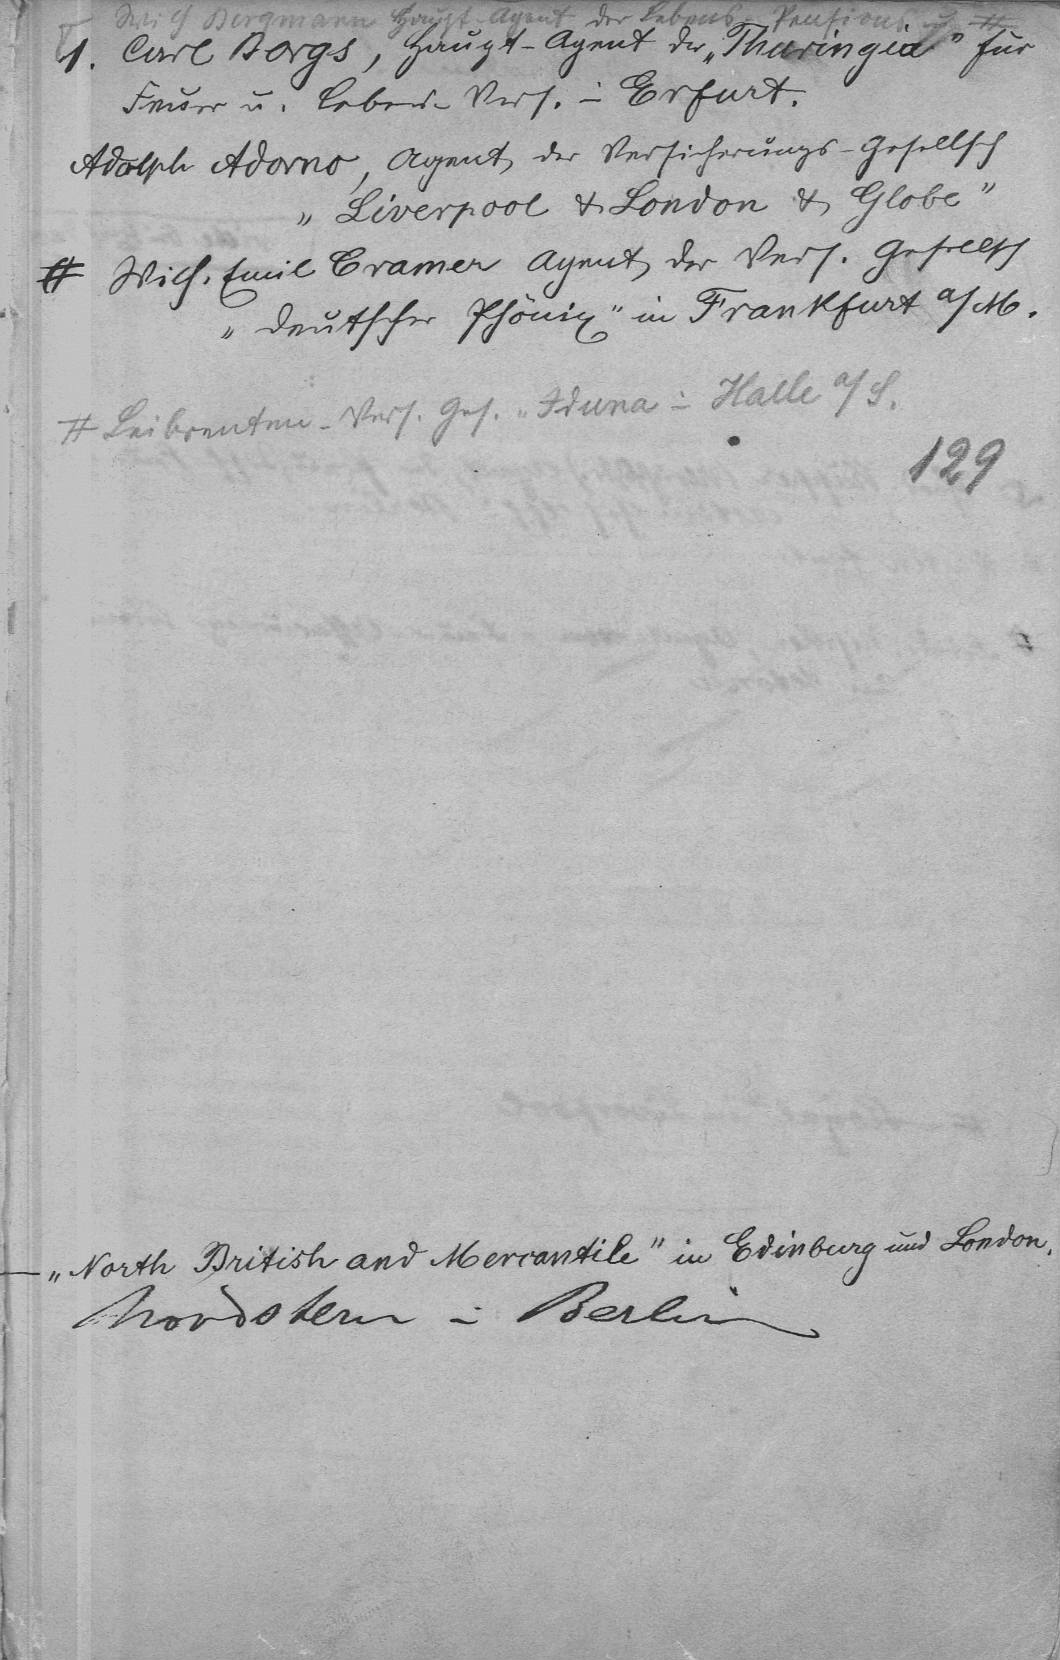 Wilh Bergmann Haupt-Agent der Lebens- Pensions u. #
1. Carl Borgs, Haupt-Agent der „Thuringia" für
Feuer u. Lebens-Vers. i Erfurt.
Adolph Adorno, Agent der Versicherungs-Gesellsch
„Liverpool & London & Globe"
# Wilh. Emil Cramer Agent der Vers. Gesellsch
„deutscher Phönix" in Frankfurt a/M.
# Leibrenten-Vers. Ges. „Iduna i Halle a/S.
129
— „North British and Mercantile" in Edinburg und London.
Nordstern i Berlin